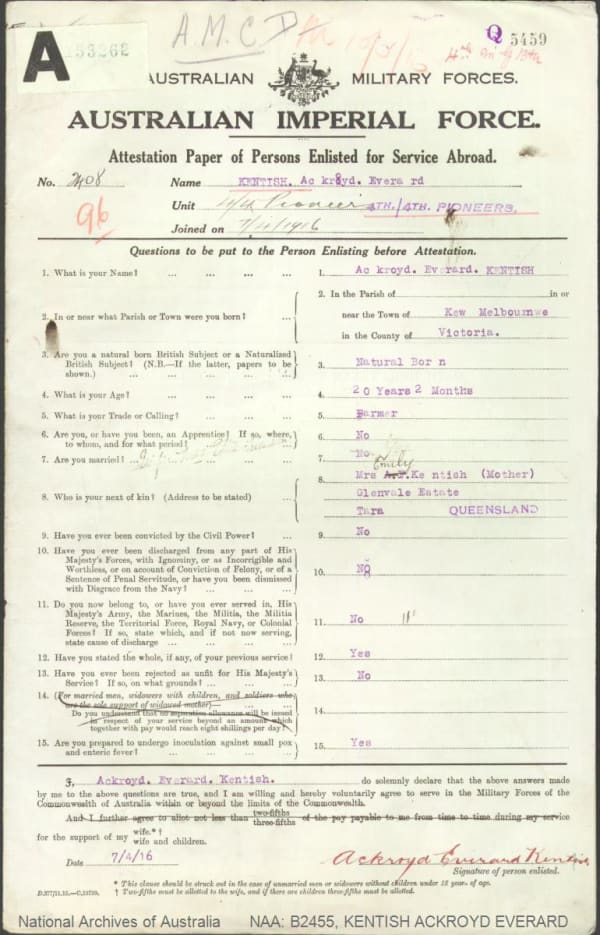 A.M.C.D
Q 5459
A 53262
AUSTRALIAN MILITARY FORCES.
AUSTRALIAN IMPERIAL FORCE.
Attestation Paper of Persons Enlisted for Service Abroad.
No. 2408 Name KENTISH. Ac kr8yd. Evera rd
96
Unit 4/4th Pioneer 4TH./4TH. PIONEERS.
Joined on 7/4/1916
Questions to be put to the Person Enlisting before Attestation.
1. What is your Name? ... ... ... ... 1. Ac kroyd. Everard. KENTISH
2. In or near what Parish or Town were you born? ... 2. In the Parish of in or
near the Town of Kew Melbournwe
in the County of Victoria.
3. Are you a natural born British Subject or a Naturalized
British Subject? (N.B.—If the latter, papers to be
shown.) ... ... ... ... ... 3. Natural Bor n
4. What is your Age? ... ... ... ... 4. 20 Years 2 Months
5. What is your Trade or Calling? ... ... ... 5. Farmer
6. Are you, or have you been, an Apprentice? If so, where,
to whom, and for what period? ... 6. No
7. Are you married? ... 7. No
8. Who is your next of kin? (Address to be stated) ... 8. Mrs A.E. Emily Ke ntish (Mother)
Glenvale Estate
Tara QUEENSLAND
9. Have you ever been convicted by the Civil Power? ... 9. No
10. Have you ever been discharged from any part of His
Majesty's Forces, with Ignominy, or as Incorrigible and
Worthless, or on account of Conviction of Felony, or of a
Sentence of Penal Servitude, or have you been dismissed
with Disgrace from the Navy? ... ... ... 10. No
11. Do you now belong to, or have you ever served in, His
Majesty's Army, the Marines, the Militia, the Militia
Reserve, the Territorial Force, Royal Navy, or Colonial
Forces? If so, state which, and if not now serving,
state cause of discharge ... ... ... ... 11. No
12. Have you stated the whole, if any, of your previous service? 12. Yes
13. Have you ever been rejected as unfit for His Majesty's
Service? If so, on what grounds? ... ... ... 13. No
14. (For married men, widowers with children, and soldiers who
are the sole support of widowed mother)—
Do you understand that no separation allowance will be issued
in respect of your service beyond an amount which
together with pay would reach eight shillings per day? 14.
15. Are you prepared to undergo inoculation against small pox
and enteric fever? ... ... ... ... 15. Yes
I, Ackroyd. Everard. Kentish. do solemnly declare that the above answers made
by me to the above questions are true, and I am willing and hereby voluntarily agree to serve in the Military Forces of the
Commonwealth of Australia within or beyond the limits of the Commonwealth.
And I further agree to allot not less than two-fifths three-fifths of the pay payable to me from time to time during my service
for the support of my wife.*† wife and children.
Date 7/4/16
Ackroyd Everard Kentish
Signature of person enlisted.
* This clause should be struck out in the case of unmarried men or widowers without children under 18 years of age.
† Two-fifths must be allotted to the wife, and if there are children three-fifths must be allotted.
National Archives of Australia NAA: B2455, KENTISH ACKROYD EVERARD